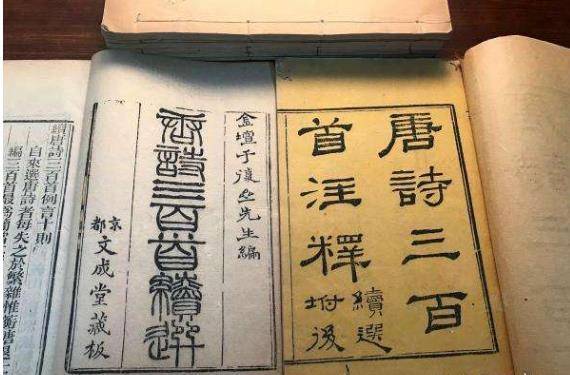 唐詩三百
首注釋
續選
坿後
金壇于復㞢先生編
唐詩三百首續選
京都
文成堂藏板
續唐詩三百首例言十則
自來選唐詩者每失之於繁雜惟蘅塘退
編三百首最為簡